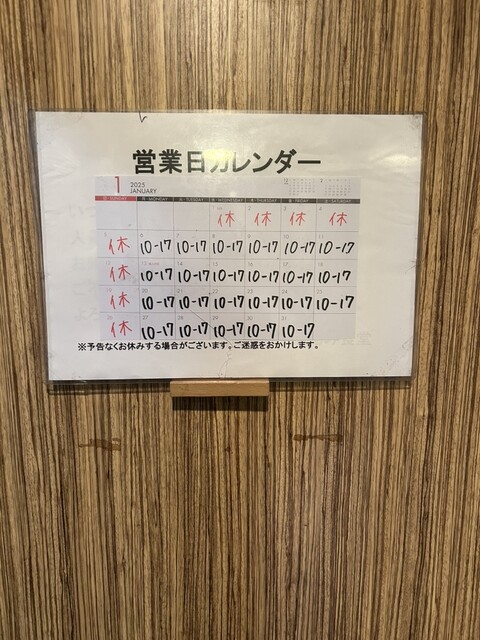 営業日カレンダー
1 2025 JANUARY
日 SUNDAY 月 MONDAY 火 TUESDAY 水 WEDNESDAY 木 THURSDAY 金 FRIDAY 土 SATURDAY
休 休 休 休
5 6 7 8 9 10 11
休 10-17 10-17 10-17 10-17 10-17 10-17
12 13 14 15 16 17 18
休 10-17 10-17 10-17 10-17 10-17 10-17
19 20 21 22 23 24 25
休 10-17 10-17 10-17 10-17 10-17 10-17
26 27 28 29 30 31
休 10-17 10-17 10-17 10-17 10-17
※予告なくお休みする場合がございます。ご迷惑をおかけします。